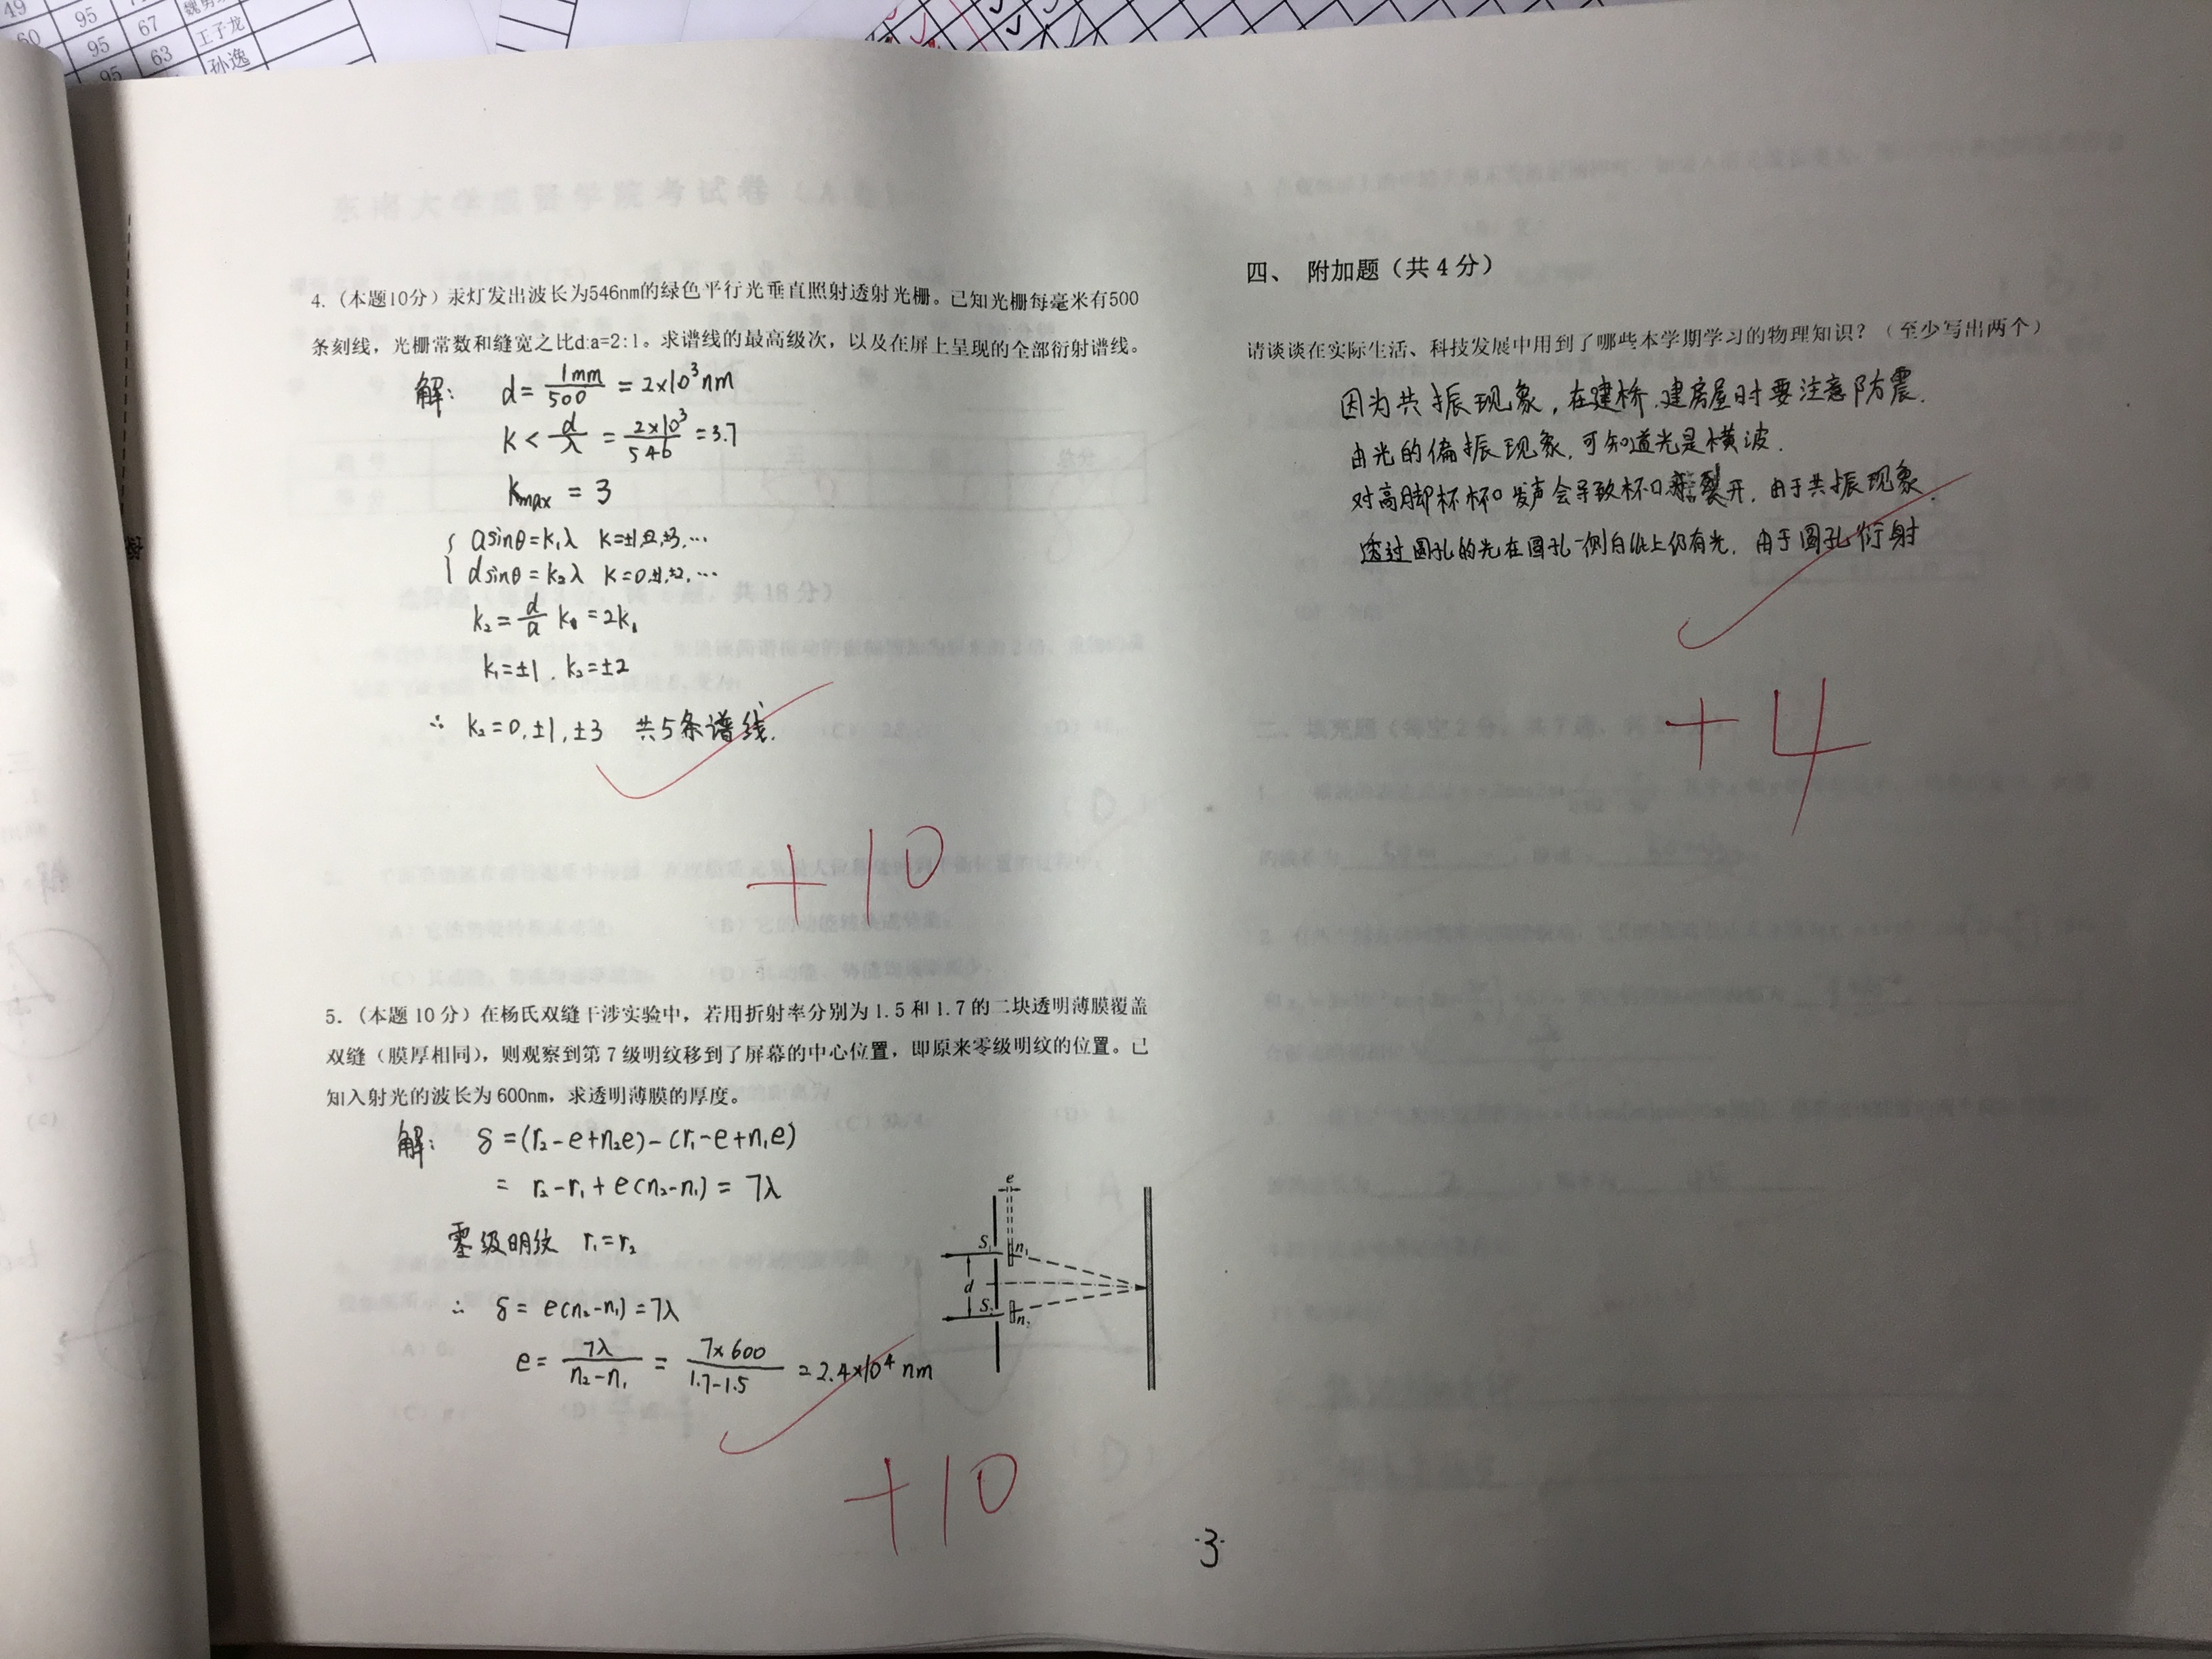 49
95
67
60
95
63
王子龙
95
孙逸
四、 附加题（共4分）
4.（本题10分）汞灯发出波长为546nm的绿色平行光垂直照射透射光栅。已知光栅每毫米有500
条刻线，光栅常数和缝宽之比d:a=2:1。求谱线的最高级次，以及在屏上呈现的全部衍射谱线。
解: d = 1mm/500 = 2×10³nm
K < d/λ = 2×10³/546 = 3.7
Kmax = 3
{ asinθ=k₁λ K=±1,±2,±3,…
dsinθ=k₂λ K=0,±1,±2,…
k₂ = d/a k₁ = 2k₁
k₁=±1. k₂=±2
∴ k₂=0,±1,±3 共5条谱线.
+10
5.（本题 10 分）在杨氏双缝干涉实验中，若用折射率分别为 1.5 和 1.7 的二块透明薄膜覆盖
双缝（膜厚相同），则观察到第 7 级明纹移到了屏幕的中心位置，即原来零级明纹的位置。已
知入射光的波长为 600nm，求透明薄膜的厚度。
解: δ=(r₂-e+n₂e)-(r₁-e+n₁e)
= r₂-r₁+e(n₂-n₁) = 7λ
零级明纹 r₁=r₂
∴ δ= e(n₂-n₁)=7λ
e = 7λ/n₂-n₁ = 7×600/1.7-1.5 = 2.4×10⁴ nm
e
S₁ n₁
d
S₂ n₂
+10
请谈谈在实际生活、科技发展中用到了哪些本学期学习的物理知识？（至少写出两个）
因为共振现象，在建桥.建房屋时要注意防震.
由光的偏振现象,可知道光是横波.
对高脚杯杯口发声会导致杯口裂开. 由于共振现象.
透过圆孔的光在圆孔一侧白纸上仍有光. 由于圆孔衍射
+4
·3·